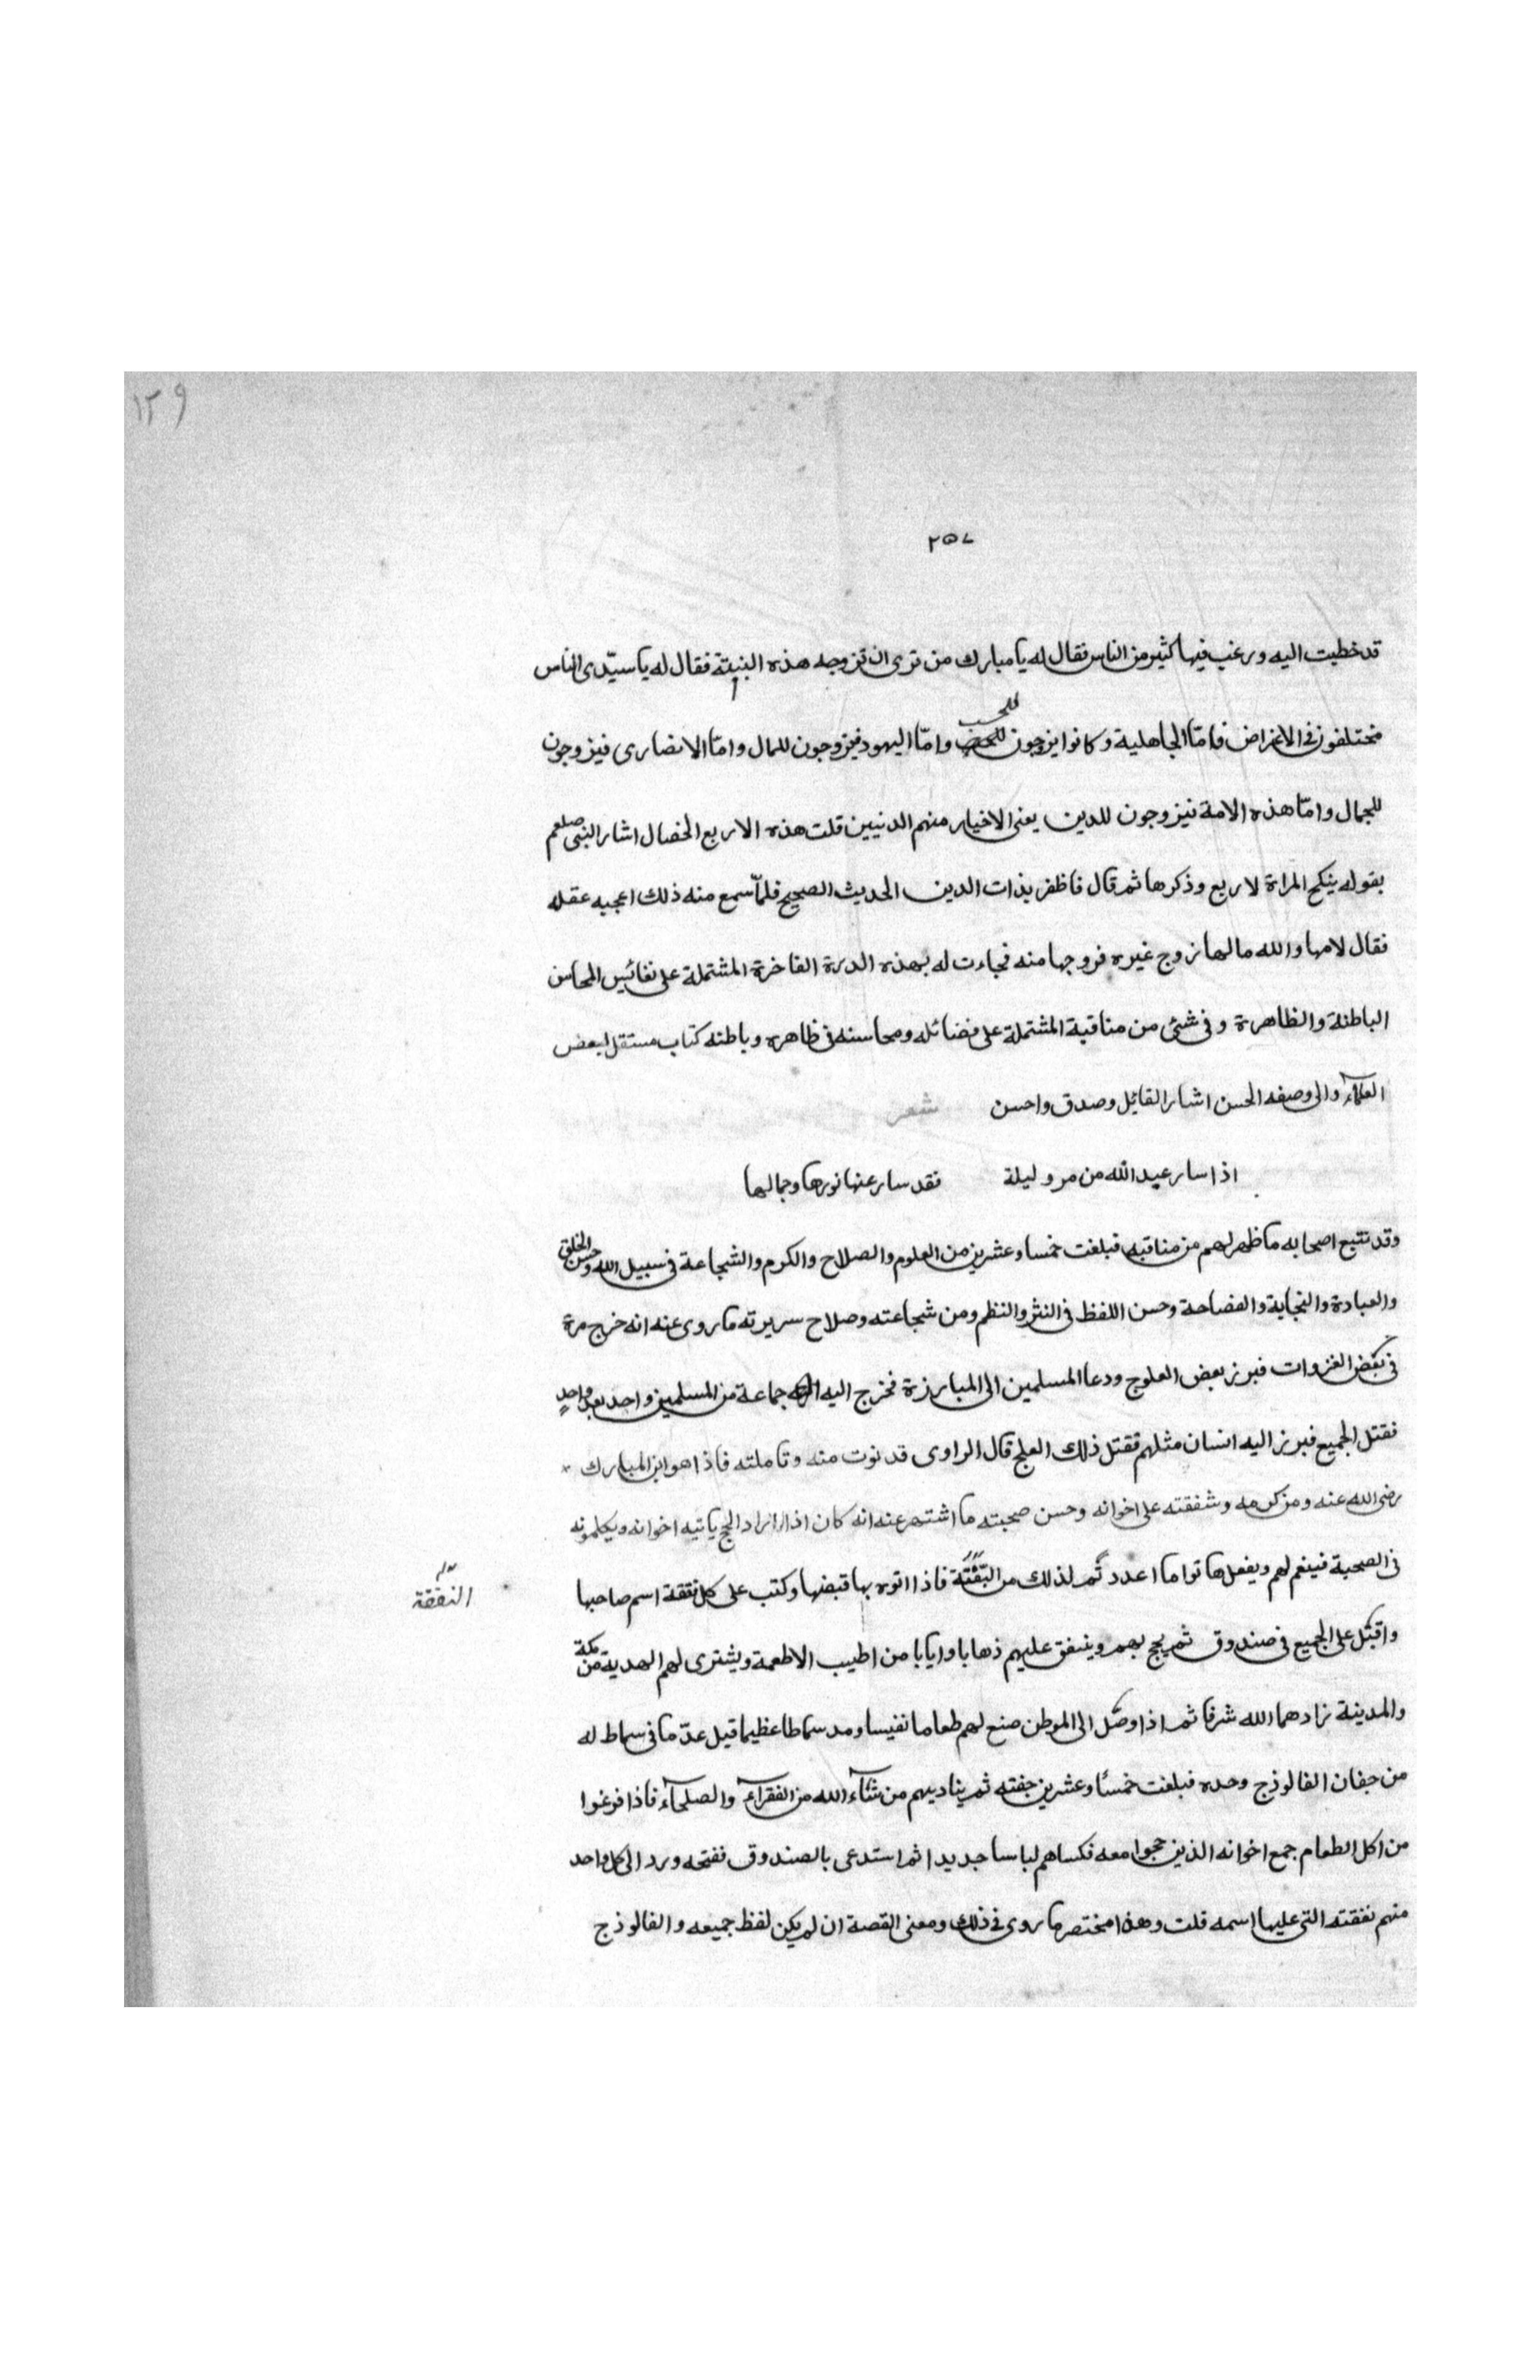 ١٢٩
٢٥٧
قد خطبت اليه ورغب فيها كثير من الناس فقال له يا مبارك من ترى ان تزوجه هذه البنية فقال له يا سيّدى الناس
مختلفون فى الاغراض فامّا الجاهلية وكانوا يزوجون للحسب وامّا اليهود فيزوجون للمال وامّا الانصارى فيزوجون
للجمال وامّا هذه الامة فيزوجون للدين يعنى الاخيار منهم الدنيين قلت هذه الاربع الخصال اشار النبى صلعم
بقوله ينكح المراة لاربع وذكرها ثم قال فاظفر بذات الدين الحديث الصحيح فلمّا سمع منه ذلك اعجبه عقله
فقال لامها والله ما لها زوج غيره فزوجها منه فجاءت له بهذه الدرة الفاخرة المشتملة على نفائس المحاسن
الباطنة والظاهرة وفى شئ من مناقبة المشتملة على فضائله ومحاسنه فى ظاهره وباطنه كتاب مستقل لبعض
العلمآء والى وصفه الحسن اشار القائل وصدق واحسن شعر
اذا سار عبد الله من مرو ليلة فقد سار عنها نورها وجمالها
وقد تتبع اصحابه ما ظهر لهم من مناقبه فبلغت خمسا وعشرين من العلوم والصلاح والكرم والشجاعة فى سبيل الله وحسن الخلق
والعبادة والنجابة والفصاحة وحسن اللفظ فى النثر والنظم ومن شجاعته وصلاح سريرته ما روى عنه انه خرج مرة
فى بعض الغزوات فبرز بعض العلوج ودعا المسلمين الى المبارزة فخرج اليه جماعة من المسلمين واحد بعد واحدٍ
فقتل الجميع فبرز اليه انسان مثلهم فقتل ذلك العلج قال الراوى فدنوت منه وتاملته فاذا هو ابن المبارك
رضى الله عنه ومن كرمه وشفقته على اخوانه وحسن صحبته ما اشتهر عنه انه كان اذا اراد الحج ياتيه اخوانه ويكلمونه
فى الصحبة فينعم لهم ويفعل هاتوا ما اعددتم لذلك من النفقة فاذا اتوه بها قبضها وكتب على كل نفقة اسم صاحبها
النفقة
واقبل على الجميع فى صندوق ثم يحج بهم وينفق عليهم ذهابا وايابا من اطيب الاطعمة ويشترى لهم الهدية من مكة
والمدينة زادهما الله شرفا ثم اذا وصل الى الموطن صنع لهم طعاما نفيسا ومد سماطا عظيما قيل عدّ ما فى سماط له
من جفان الفالوذج وحده فبلغت خمسًا وعشرين جفنه ثم يناديهم من شآء الله من الفقرآء والصلحآء فاذا فرغوا
من اكل الطعام جمع اخوانه الذين حجوا معه فكساهم لباسا جديدا ثم استدعى بالصندوق ففتحه ورد الى كل واحد
منهم نفقته التى عليها اسمه قلت وهذا مختصر ما روى فى ذلك ومعنى القصة ان لم يكن لفظ جميعه والفالوذج